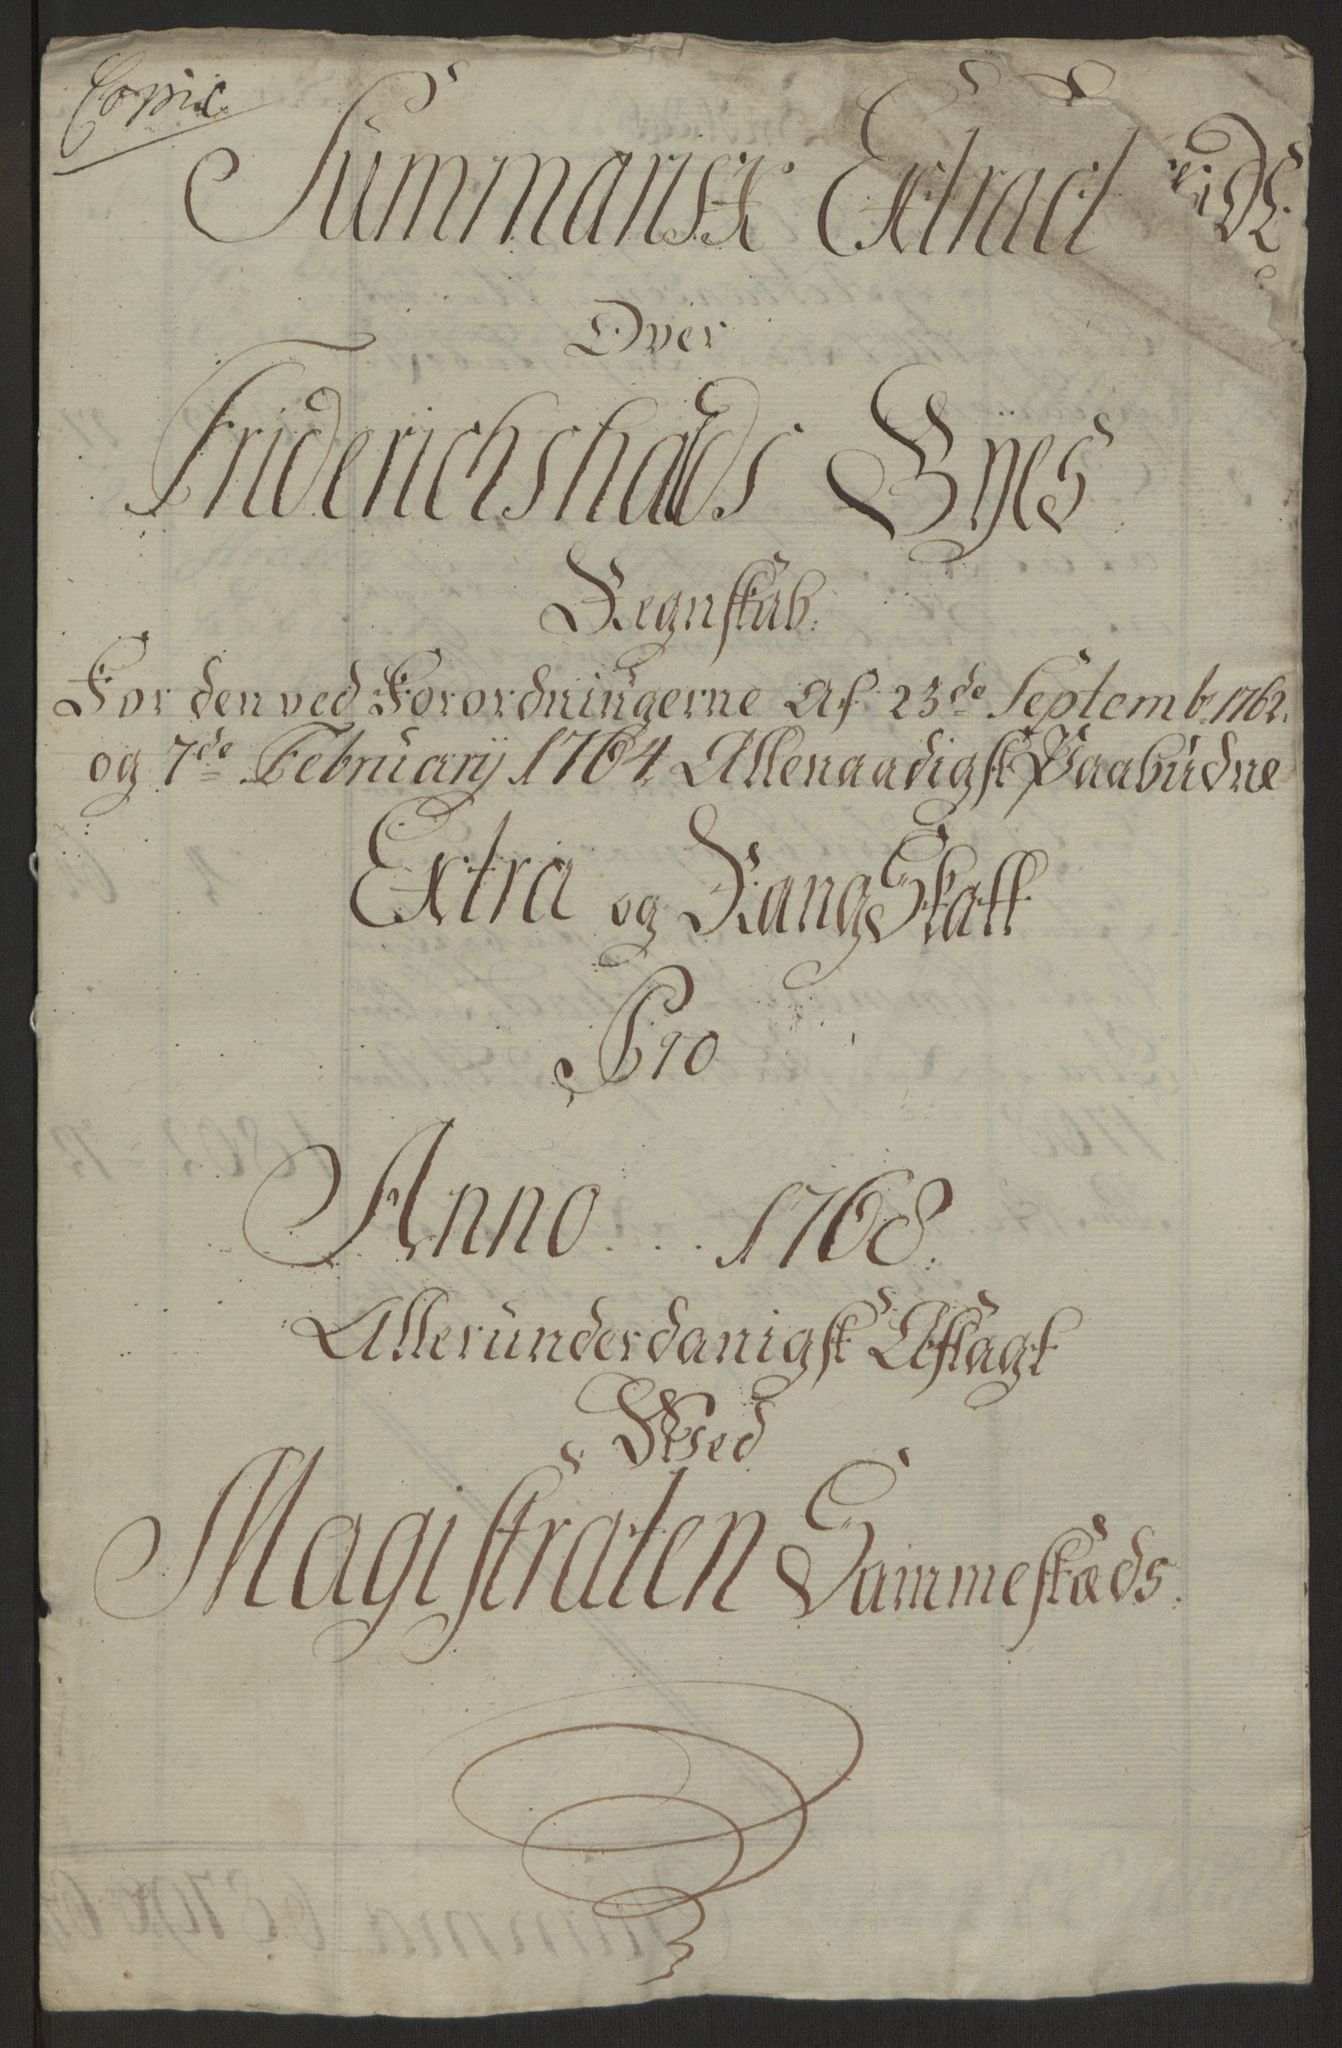 Copie
Summarisk Extract
Over
Friderichshalds Byes
Regnskab
For den ved Forordningerne Af 23de Septemb. 1762.
og 7de Februarij 1764 Allernaadigst Paabudne
Extra og Rang Skatt
Pro
Anno . . . 1768.
Allerunderdanigst Aflagt
Wed
Magistraten Sammestæds.